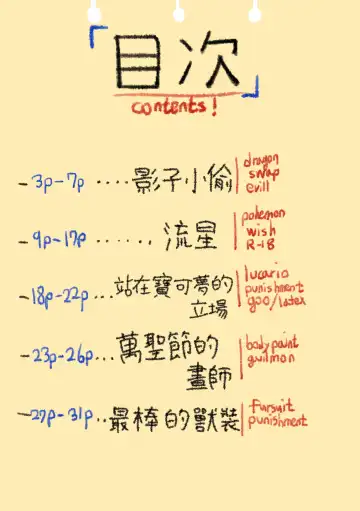 「目次」
contents!
-3p-7p ‥‥影子小偷
dragon
swap
evill
-9p-17p ‥‥‥ 流星
pokemon
wish
R-18
-18p-22p‥站在寶可夢的
立場
lucario
punishment
goo/latex
-23p-26p‥萬聖節的
畫師
body paint
guilmon
-27p-31p‥最棒的獸裝
fursuit
punishment